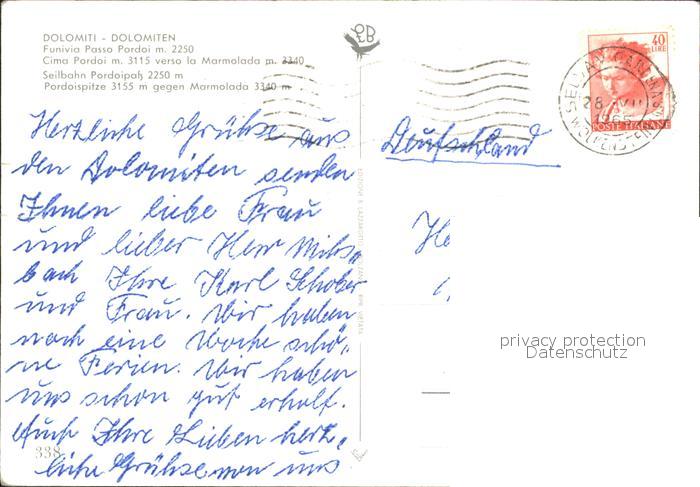 DOLOMITI - DOLOMITEN
Funivia Passo Pordoi m. 2250
Cima Pordoi m. 3115 verso la Marmolada m. 3340
Seilbahn Pordoipaß 2250 m
Pordoispitze 3155 m gegen Marmolada 3340 m
Herzliche Grüße aus
den Dolomiten senden
Ihnen liebe Frau
und lieber Herr Miks„
bach Ihre Karl Schober
und Frau. Wir haben
noch eine Woche schö„
ne Ferien. Wir haben
uns schon gut erholt.
Auch Ihre Lieben herz„
liche Grüße von uns
338
Deutschland
He
40
LIRE
POSTE ITALIANE
28 VII
1965
privacy protection
Datenschutz